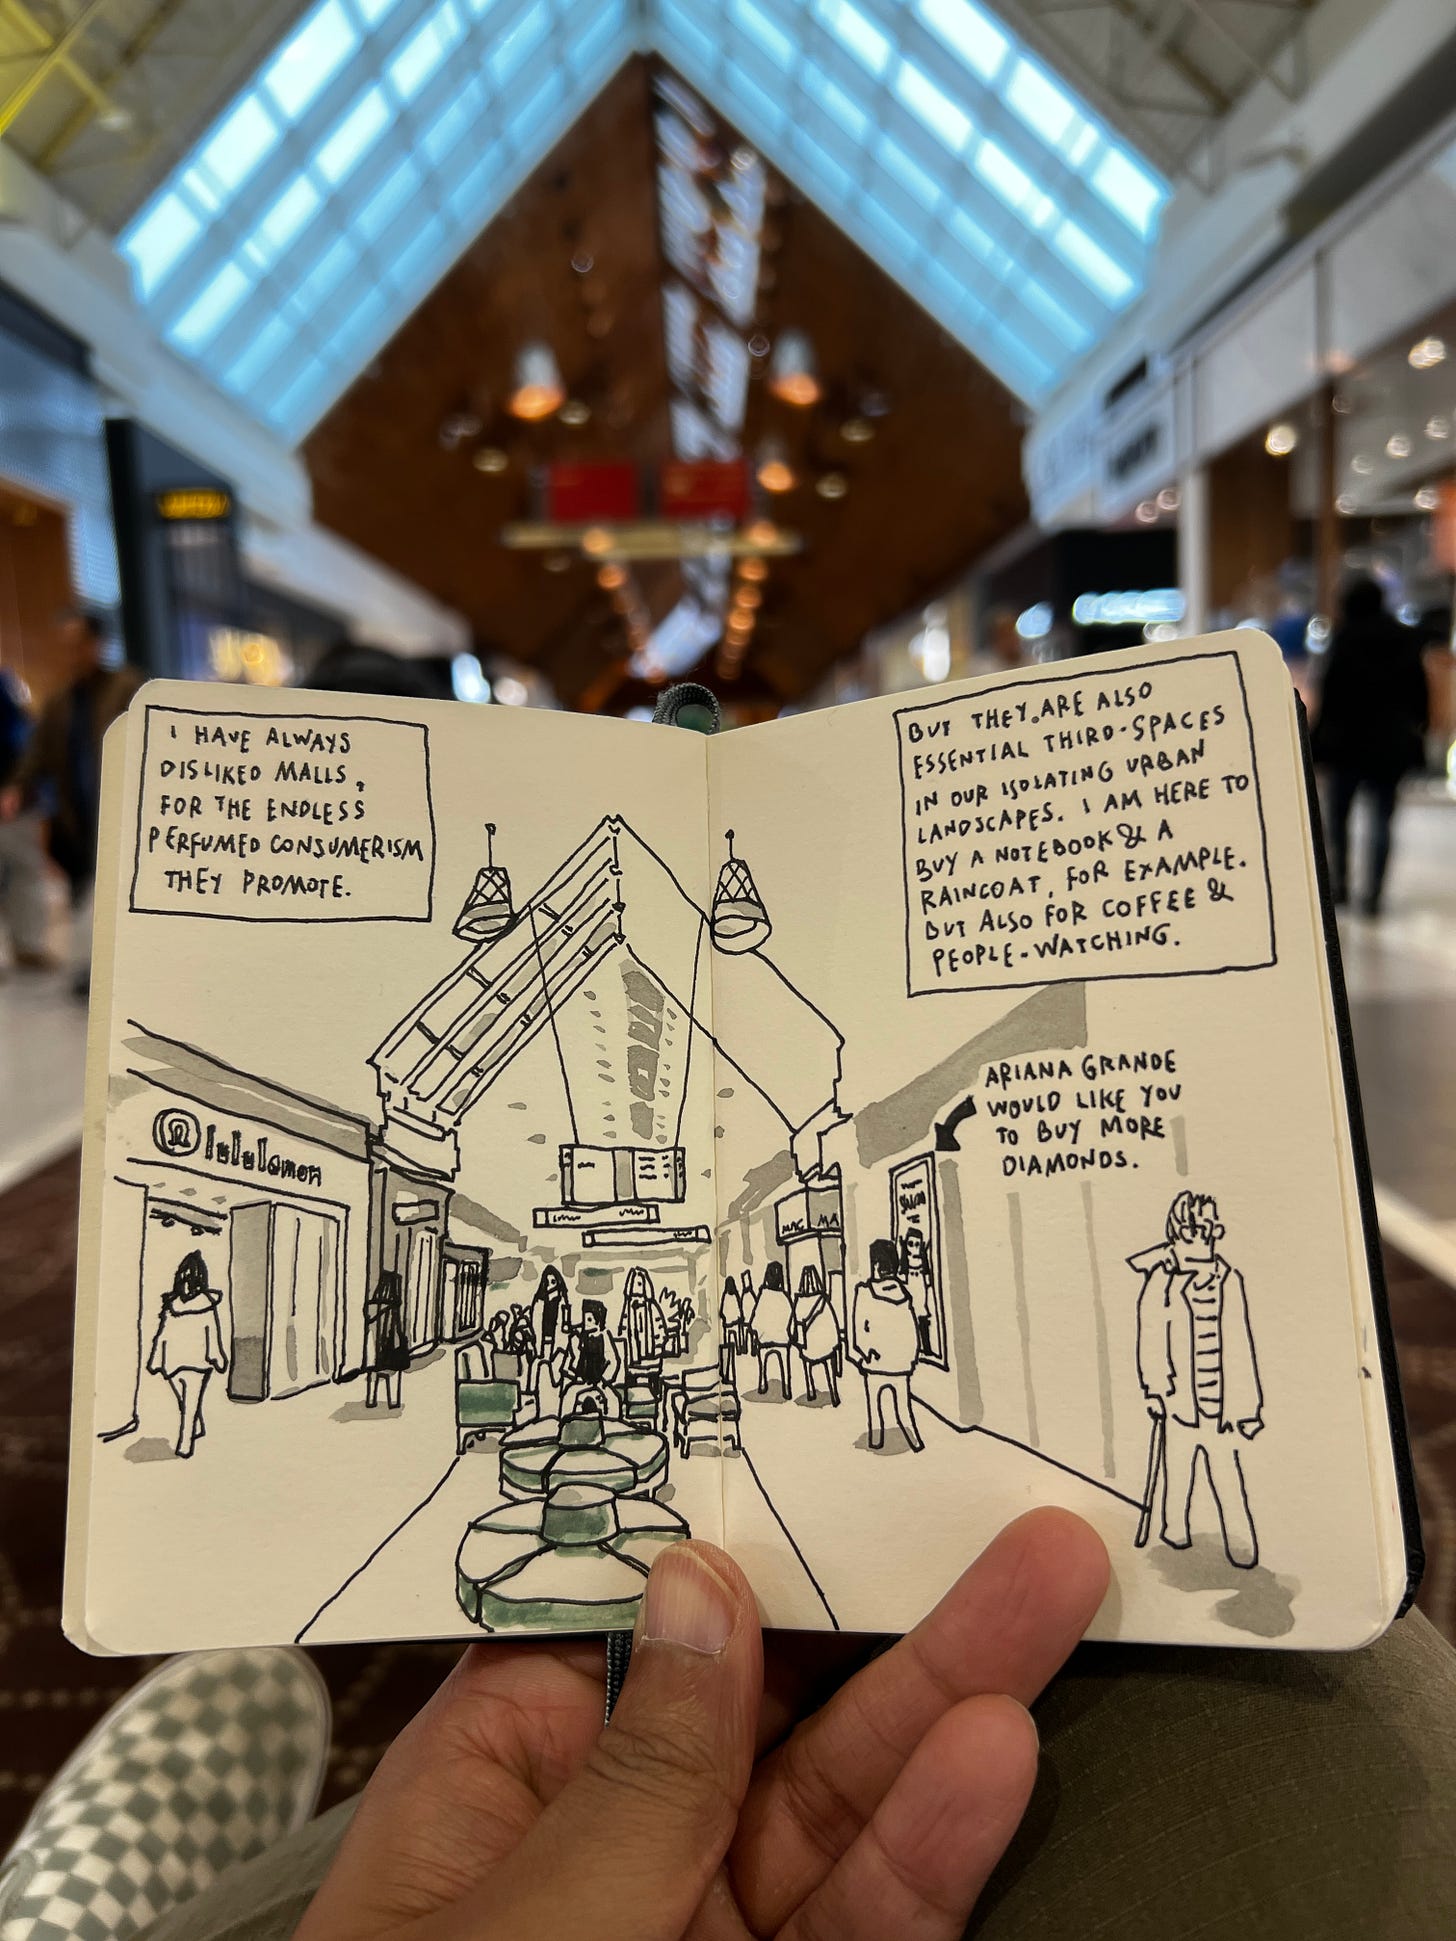 I HAVE ALWAYS
DISLIKED MALLS,
FOR THE ENDLESS
PERFUMED CONSUMERISM
THEY PROMOTE.
BUT THEY ARE ALSO
ESSENTIAL THIRD-SPACES
IN OUR ISOLATING URBAN
LANDSCAPES. I AM HERE TO
BUY A NOTEBOOK & A
RAINCOAT, FOR EXAMPLE.
BUT ALSO FOR COFFEE &
PEOPLE-WATCHING.
ARIANA GRANDE
WOULD LIKE YOU
TO BUY MORE
DIAMONDS.
lululemon
MAC MA